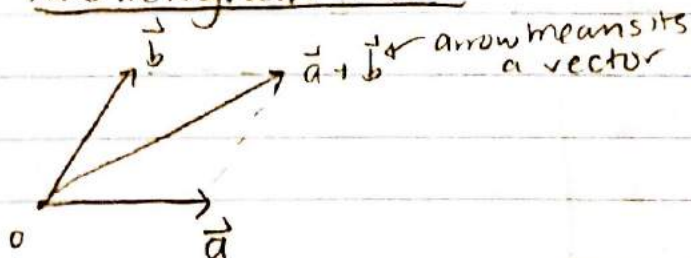 b⃗
a⃗ + b⃗ arrow means its
a vector
0
a⃗